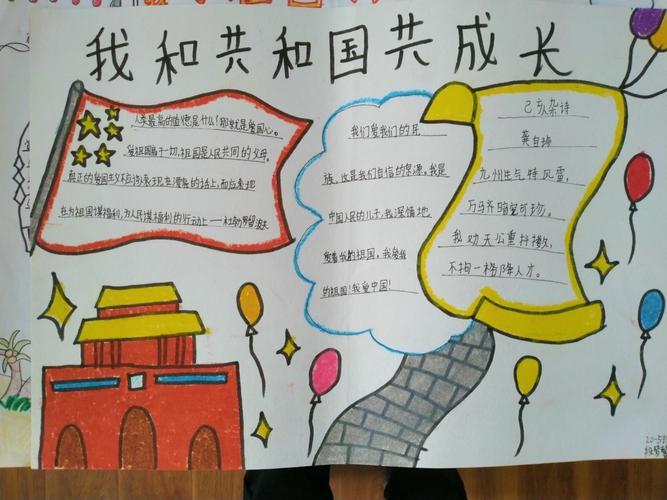 我和共和国共成长
人类最高的道德是什么？那就是爱国心。
爱祖国高于一切，祖国是人民共同的父母。
真正的爱国主义不应该表现在漂亮的话上，而应表现
在为祖国谋福利，为人民谋福利的行动上——杜勃罗留波夫
我们爱我们的民
族，这是我们自信的泉源，我是
中国人民的儿子，我深情地
爱着我的祖国，我爱我
的祖国！我爱中国！
己亥杂诗
龚自珍
九州生气恃风雷，
万马齐喑究可珍。
我劝天公重抖擞，
不拘一格降人才。